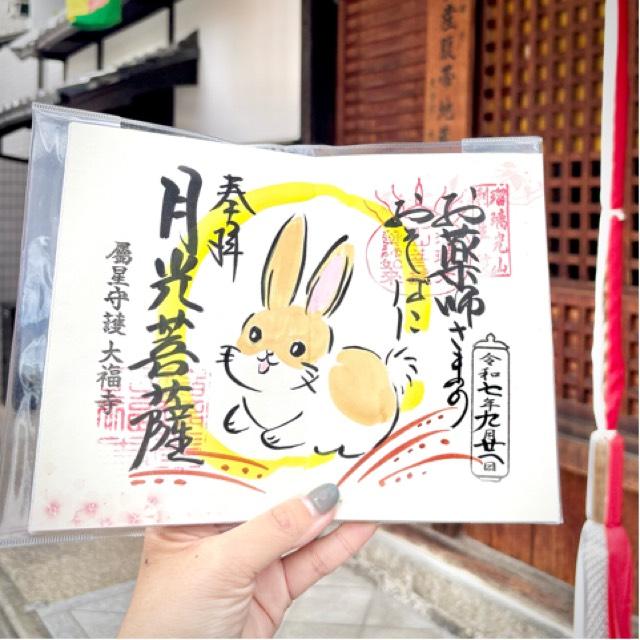 お薬師さまの
おそばに
奉拝
月光菩薩
屬星守護 大福寺
令和七年九月廿八日
瑠璃光山